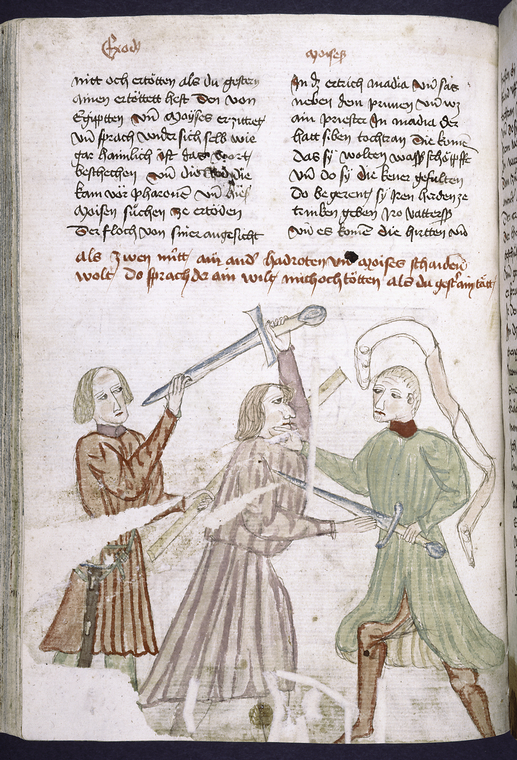 Exody
Moises
mitt och ertötten als du gestern
ainen ertöttett hest Den von
Egÿptten vñ Moÿses erzutteg
vñ sprach vnder sich selb wie
gar haimlich ist das wort
beschechen vñ die
kam vor pharonem vñ
Moisen süchen ze ertöden
Der floch von siner angesicht
In dz ertrich madia vñ sas
neben dem prunen vñ wz
ain priester In madia der
hatt siben tochtran Die komẽ
das sÿ wolten wasser schöpffẽ
vñ do sÿ die kener gefulten
Do begerent sÿ Iren herden ze
trinken geben Iro vatters
vñ es komẽ die hirtten vñ
als zwen mitt ain and hadroten vñ Moises schaiden
wolt do sprach der ain wilt mich och tötten als du gest ain tätt